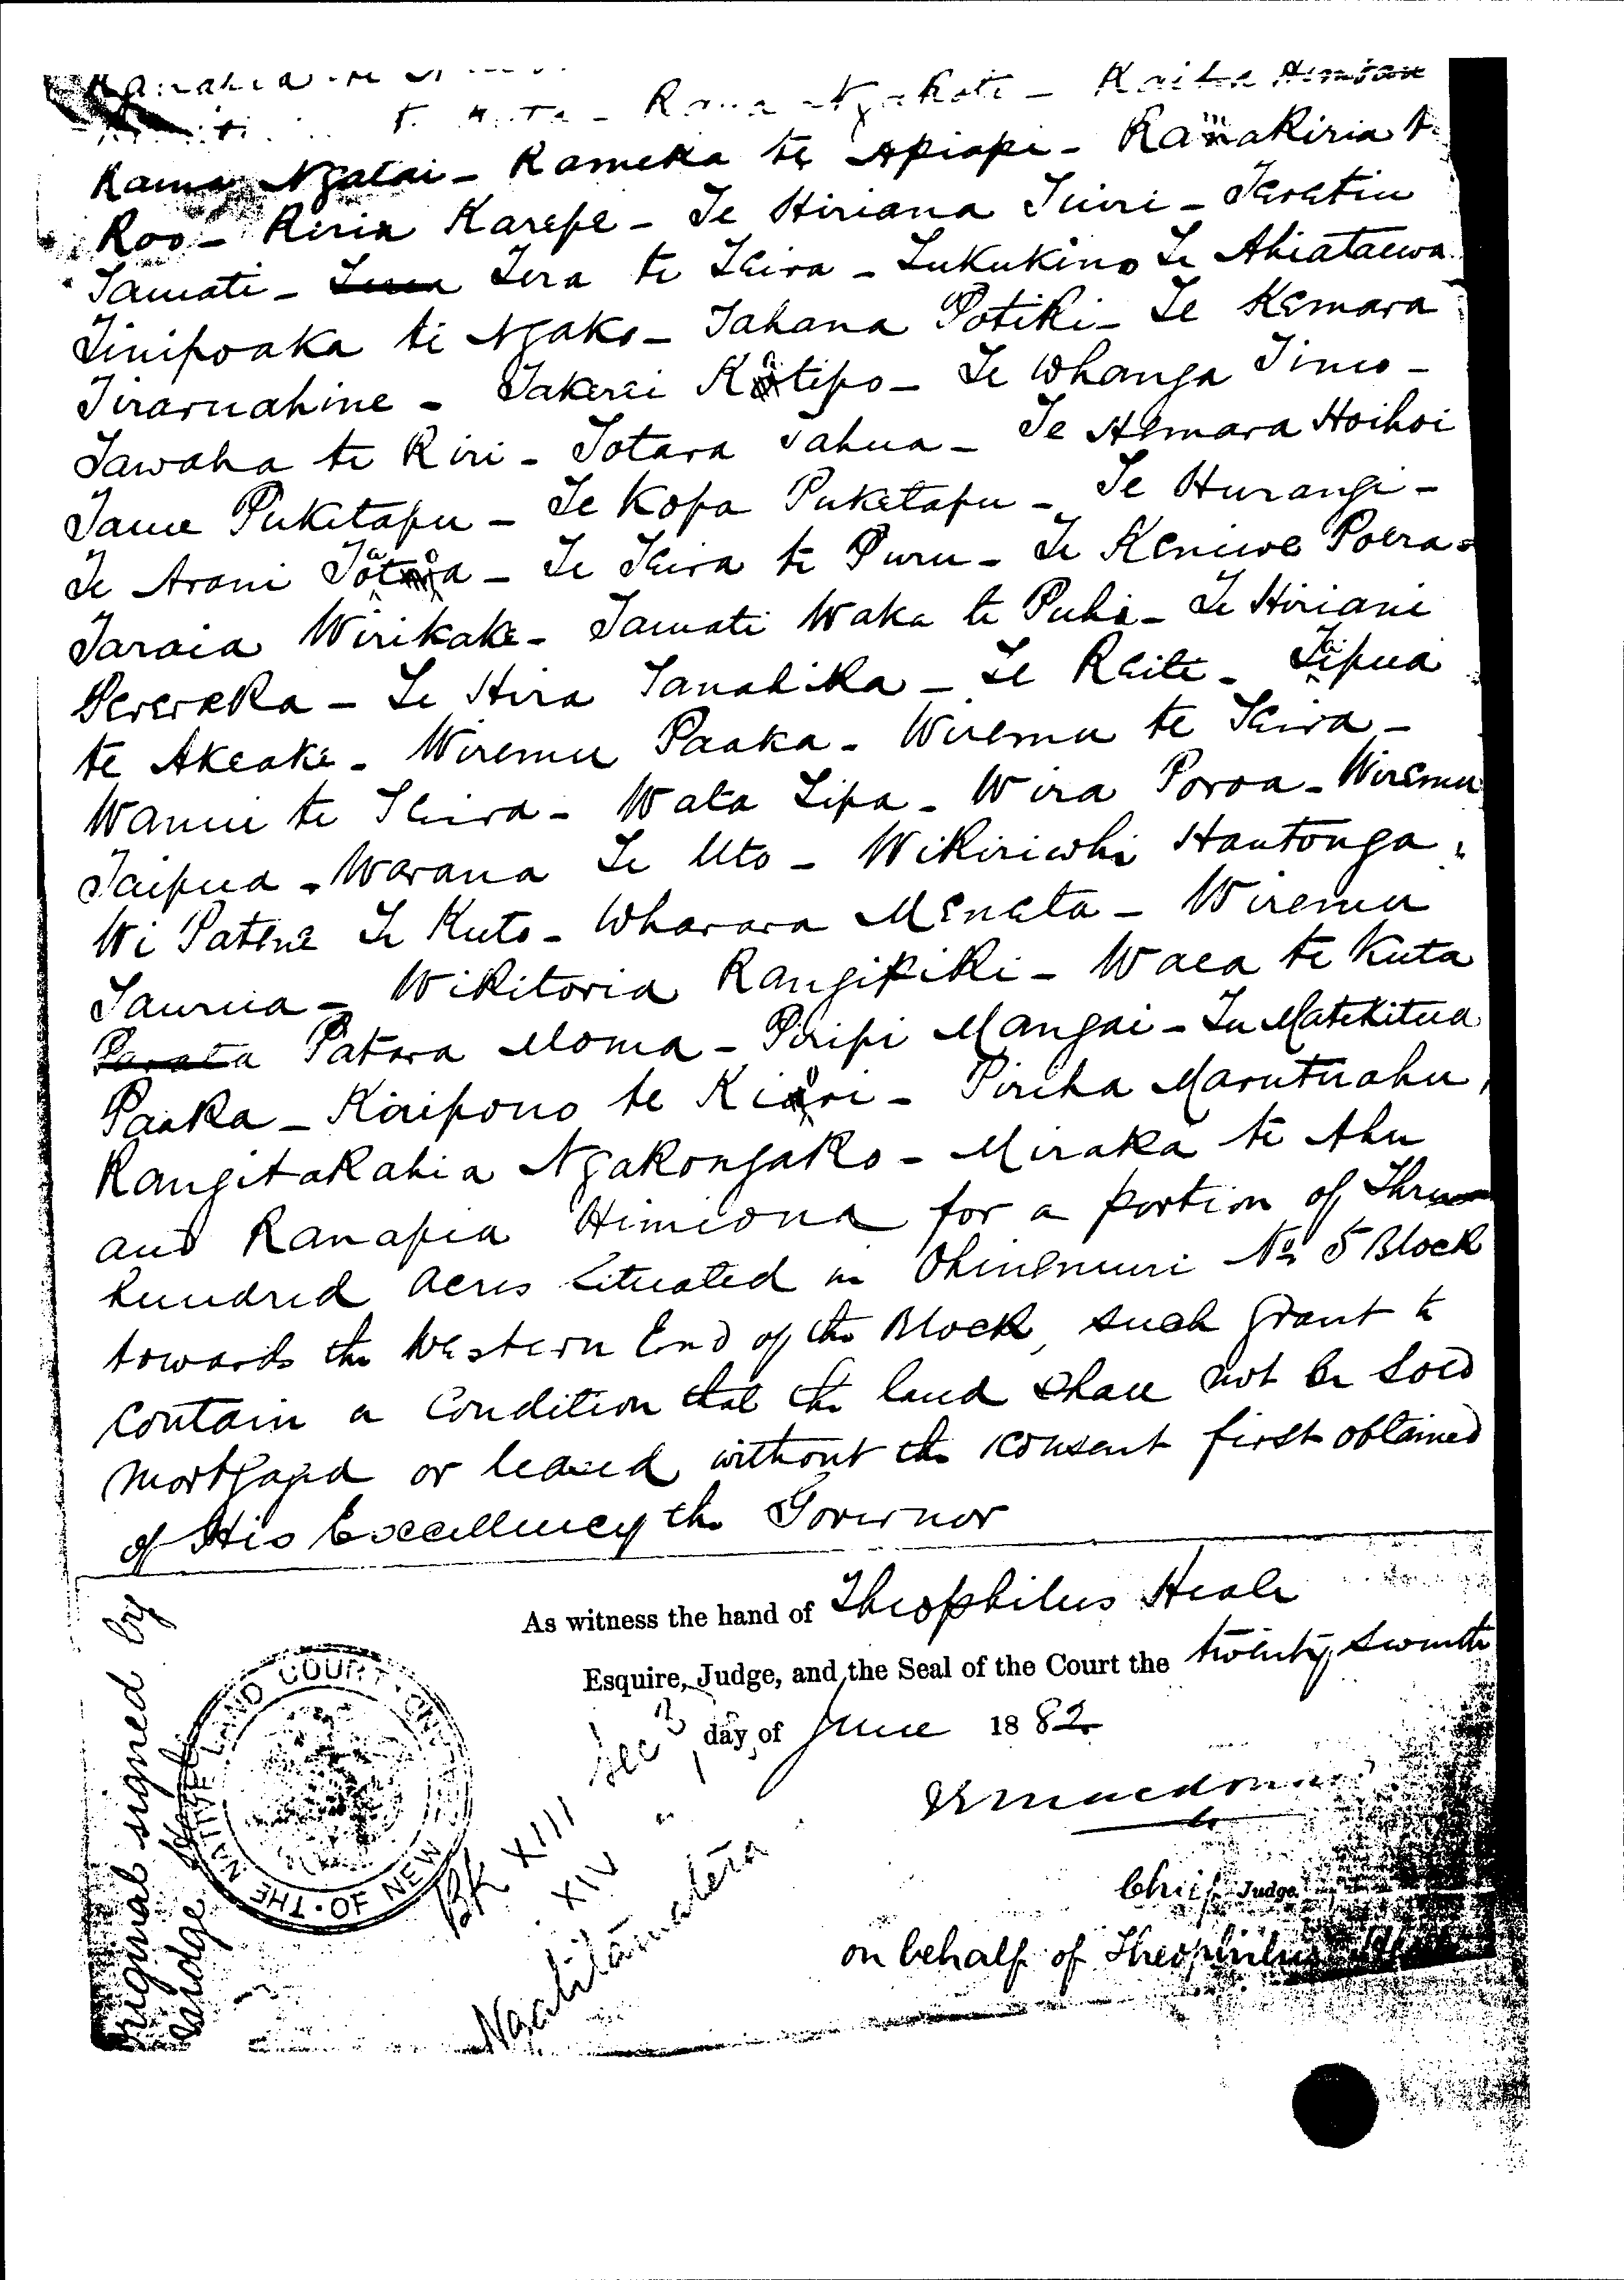 Rama Ngatai - Rameka te Apiapi - Ramakiria t
Roo - Riria Karepe - Te Hiriana Tuiri - Teretiu
Tamati - Tera te Teira - Tukukino Te Ahiataewa
Tinipoaka te Ngako - Tahana Potiki - Te Kemara
Tiraruahine - Takerei Katipo - Te Whanga Timo -
Tawaha te Riri - Totara Tahua - Te Hemara Hoihoi
Tame Puketapu - Te Kopa Puketapu - Te Hurangi -
Te Arani - Te Teira te Puru - Te Keniwe Poera
Taraia Wirikake - Tamati Waka te Puhi - Te Hiriani
Pereraka - Te Hira Tanahika - Te Reiti - Taipua
te Akeake - Wiremu Paaka - Wiremu te Teira -
te Teira - Wata Tipa - Wira Poroa - Wiremu
Taipua - Warana Te Uto - Wikiriwhi Hautonga
Wi Patene Te Kuto - Wharara Meneta - Wiremu
Taurua - Wikitoria Rangipiki - Waea te Kuta
Patara Moma - Piripi Mangai - Tu Matekitua
Paaka - Kiripono te - Piriha Marutuahu
Rangitakahia Ngakongako - Miraka te Ahu
and Ranapia Himiona for a portion of Three
hundred acres situated in Ohinemuri No 5 Block
towards the Western End of the Block, such grant to
contain a condition that the land shall not be sold
mortgaged or leased without the consent first obtained
of His Excellency the Governor
As witness the hand of Theophilus Heale
Esquire, Judge, and the Seal of the Court the twenty seventh
day of June 1882
Chief Judge
on behalf of Theophilus
Original signed by
Judge
THE NATIVE LAND COURT OF NEW
BK XIII Sec 3
XIV " 1
Ngatitamatera